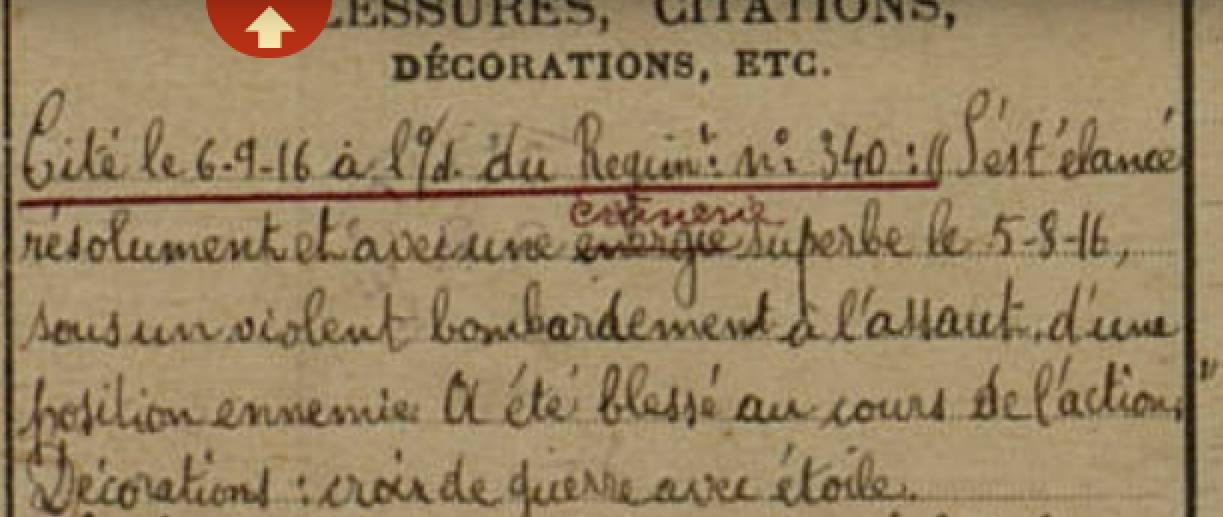 BLESSURES, CITATIONS,
DÉCORATIONS, ETC.
Cité le 6-9-16 à l'O/d. du Regimt. n° 340 : "S'est élancé
crânerie
résolument et avec une energie superbe le 5-9-16,
sous un violent bombardement à l'assaut d'une
position ennemie. A été blessé au cours de l'action."
Décorations : croix de guerre avec étoile.